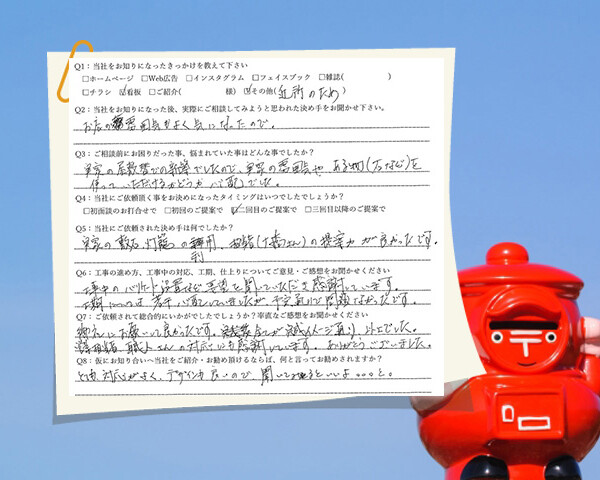 Q1：当社をお知りになったきっかけを教えて下さい
□ホームページ □Web広告 □インスタグラム □フェイスブック □雑誌( )
□チラシ ☑看板 □ご紹介( 様) ☑その他(近所のため)
Q2：当社をお知りになった後、実際にご相談してみようと思われた決め手をお聞かせ下さい。
お店の雰囲気がよく気になったので。
Q3：ご相談前にお困りだった事、悩まれていた事はどんな事でしたか？
実家の屋敷での新築でしたので、実家の雰囲気や、ある物(石など)を
使っていただけるかどうか心配でした。
Q4：当社にご依頼頂く事をお決めになったタイミングはいつでしたでしょうか？
□初面談のお打合せで □初回のご提案で ☑二回目のご提案で □三回目以降のご提案で
Q5：当社にご依頼された決め手は何でしたか？
実家の敷石、灯籠の利用、 の提案力が良かったです。
Q6：工事の進め方、工事中の対応、工期、仕上りについてご意見・ご感想をお聞かせください
工事中のバリケード設置など要望を聞いていただき感謝しています。
工期については若干心配していましたが、予定通りで問題なかったです。
Q7：ご依頼されて総合的にいかがでしたでしょうか？率直なご感想をお聞かせください
にお願いして良かったです。 イメージ通り、以上でした。
職人さんの対応にも感謝しています。ありがとうございました。
Q8：仮にお知り合いへ当社をご紹介・お勧め頂けるならば、何と言ってお勧めされますか？
とても対応がよく、デザインも良いので、聞いてみるといいよ。。。と。